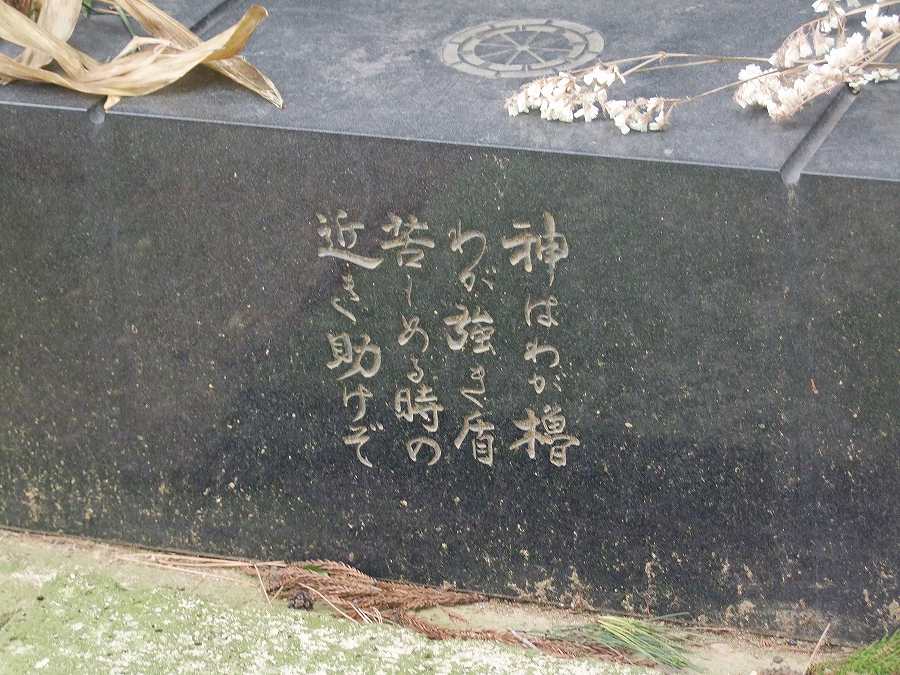 神はわが櫓
わが強き盾
苦しめる時の
近き助けぞ